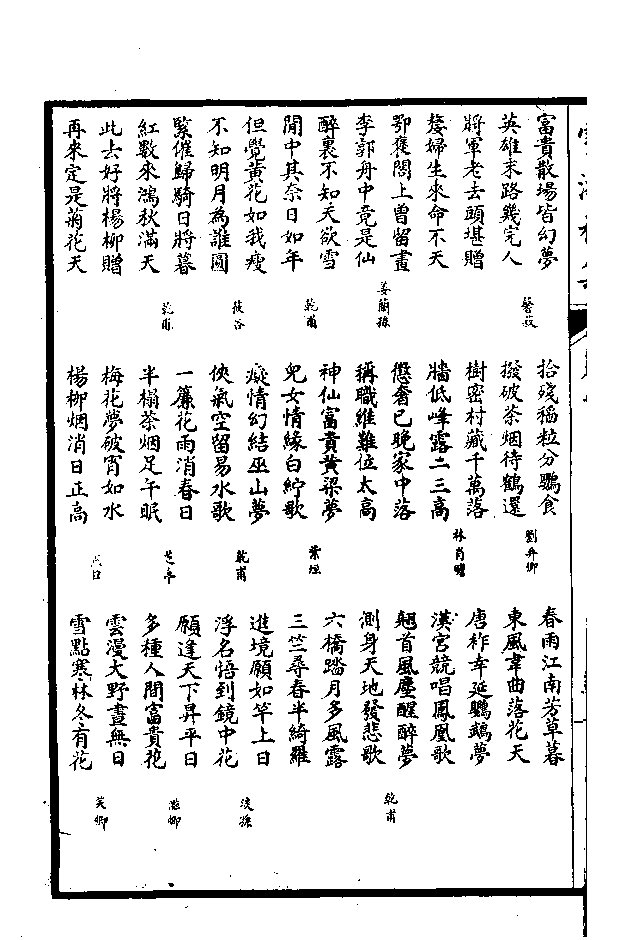 富貴散場皆幻夢
英雄末路幾完人
將軍老去頭堪贈
嫠婦生來命不天
鄂褒閣上曾留畫
李郭舟中竟是仙
姜蘭孫
醉裏不知天欲雪
閒中其奈日如年
乾甫
但覺黃花如我瘦
不知明月為誰圓
莜谷
緊催歸騎日將暮
紅數來鴻秋滿天
乾甫
此去好將楊柳贈
再來定是菊花天
拾殘稻粒分鸚食
撥破茶烟待鶴還
劉弁卿
樹密村藏千萬落
牆低峰露二三高
林肖蟾
懲奢已晚家中落
稱職維難位太高
神仙富貴黃梁夢
兒女情緣白紵歌
葉垣
癡情幻結巫山夢
俠氣空留易水歌
乾甫
一簾花雨消春日
半榻茶烟足午眠
芝亭
梅花夢破宵如水
楊柳烟消日正高
春雨江南芳草暮
東風韋曲落花天
唐祚幸延鸚鵡夢
漢宮競唱鳳凰歌
翹首風塵醒醉夢
側身天地發悲歌
乾甫
六橋踏月多風露
三竺尋春半綺羅
進境願如竿上日
浮名悟到鏡中花
淡孫
願逢天下昇平日
多種人間富貴花
滋卿
雲漫大野晝無日
雪點寒林冬有花
芙卿